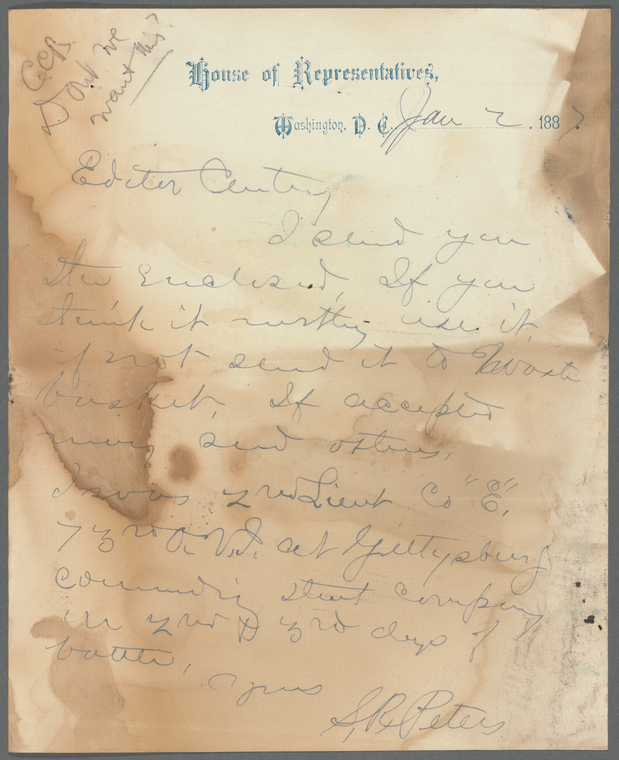 CCB
Dont we
want this?
House of Representatives,
Washington, D. C. Jan 2, 1887.
Editor Century
I send you
the enclosed, If you
think it worthy use it,
if not send it to waste
basket, If accepted
may send others,
I was 2nd Lieut Co "E",
73rd O. V. I. at Gettysburg
commdig that company
in 2nd & 3rd days of
battle,
Yours
S. R. Peters